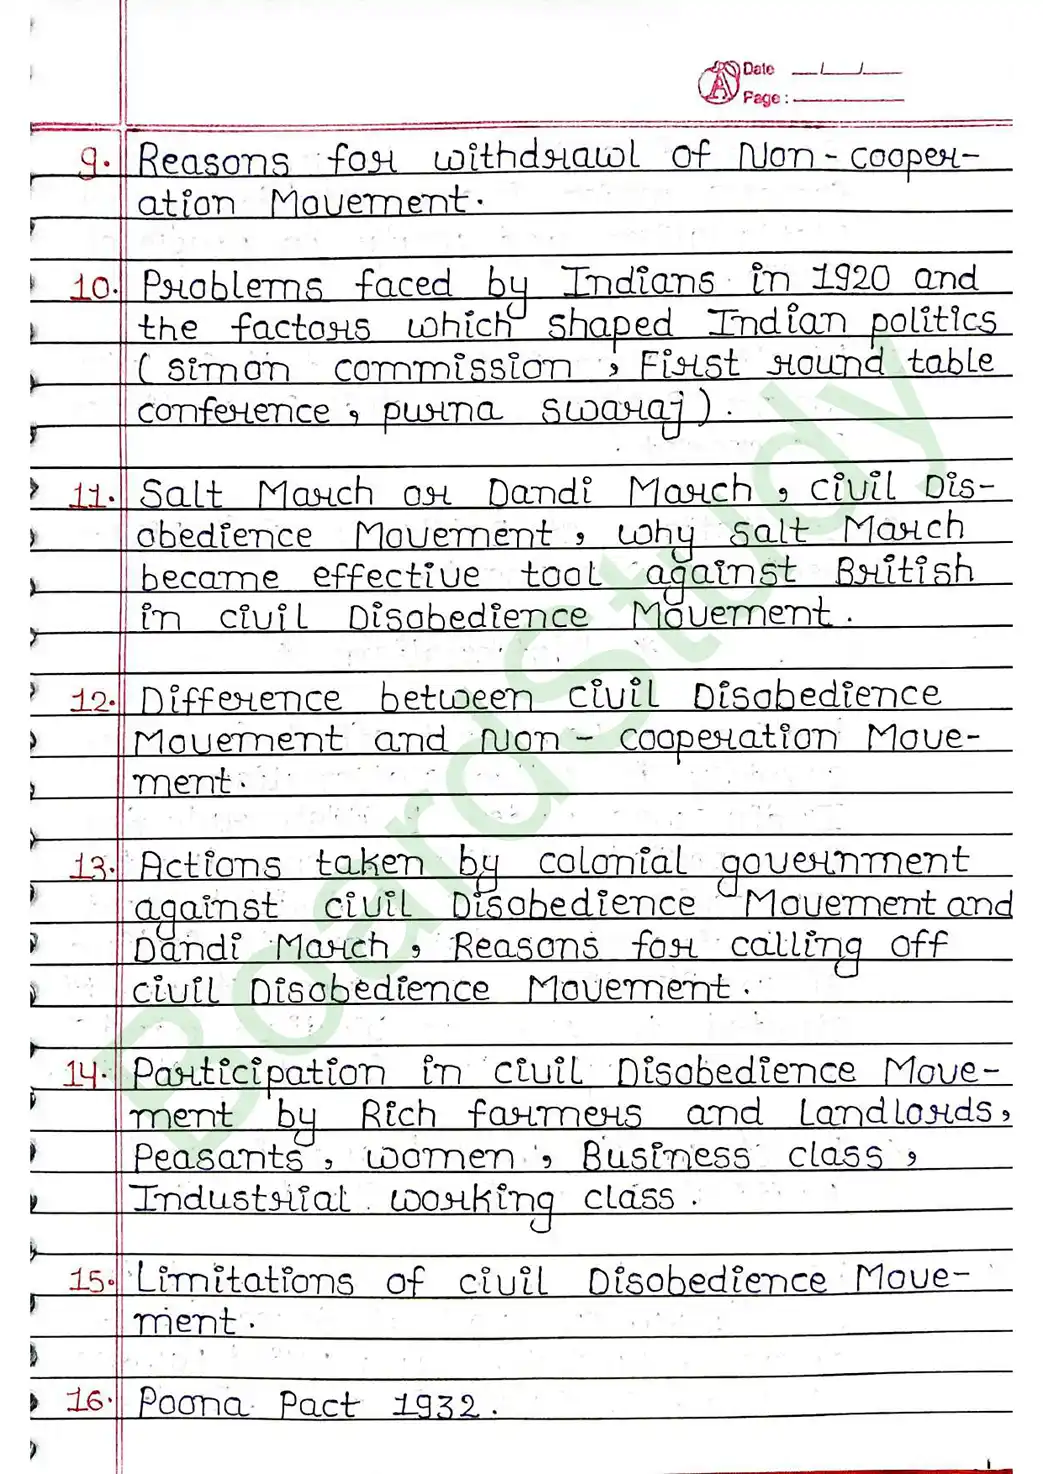 Date
Page :
9. Reasons for withdrawl of Non-cooper-
ation Movement.
10. Problems faced by Indians in 1920 and
the factors which shaped Indian politics
(simon commission, First round table
conference, purna swaraj).
11. Salt March or Dandi March, civil Dis-
obedience Movement, why salt March
became effective tool against British
in civil Disobedience Movement.
12. Difference between civil Disobedience
Movement and Non-cooperation Move-
ment.
13. Actions taken by colonial government
against civil Disobedience Movement and
Dandi March, Reasons for calling off
civil Disobedience Movement.
14. Participation in civil Disobedience Move-
ment by Rich farmers and Landlords,
Peasants, women, Business class,
Industrial working class.
15. Limitations of civil Disobedience Move-
ment.
16. Poona Pact 1932.
BoardStudy